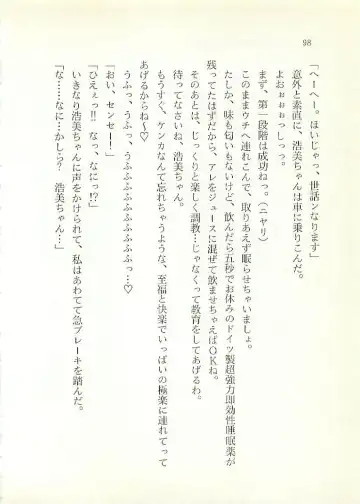 98
「へーへー。ほいじゃっ、世話ンなります」
意外と素直に、浩美ちゃんは車に乗りこんだ。
よおぉぉぉっしっっ。
まず、第一段階は成功ねっ。(ニヤリ)
このままウチへ連れこんで、取りあえず眠らせちゃいましょ。
たしか、味も匂いもないけど、飲んだら五秒でお休みのドイツ製超強力即効性睡眠薬が
残ってたはずだから、アレをジュースに混ぜて飲ませちゃえばOKね。
そのあとは、じっくりと楽しく調教…じゃなくって教育をしてあげるわ。
待ってなさいね、浩美ちゃん。
もうすぐ、ケンカなんて忘れちゃうような、至福と快楽でいっぱいの極楽に連れてって
あげるからね〜♡
うふっ、うふっ、うふふふふふふふふ…♡
「おい、センセー！」
「ひえぇっ!! なっ、なにっ!?」
いきなり浩美ちゃんに声をかけられて、私はあわてて急ブレーキを踏んだ。
「な……なに…かしら？　浩美ちゃん…」